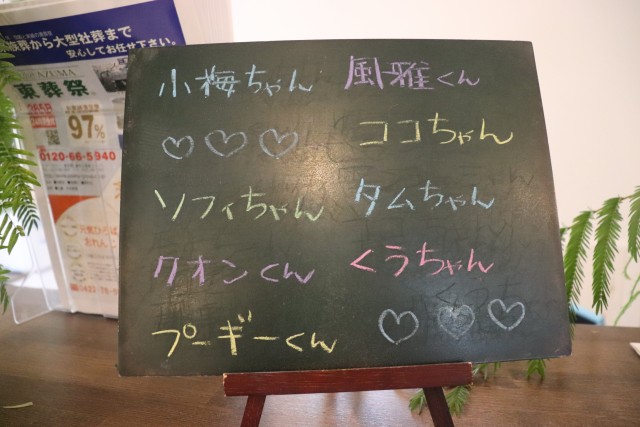 小梅ちゃん 風雅くん
♡ ♡ ♡ ココちゃん
ソフィちゃん タムちゃん
クオンくん くうちゃん
プーギーくん ♡ ♡ ♡
族葬から大型社葬まで
安心してお任せ下さい。
AZUMA
東葬祭
97%
0120-66-5940